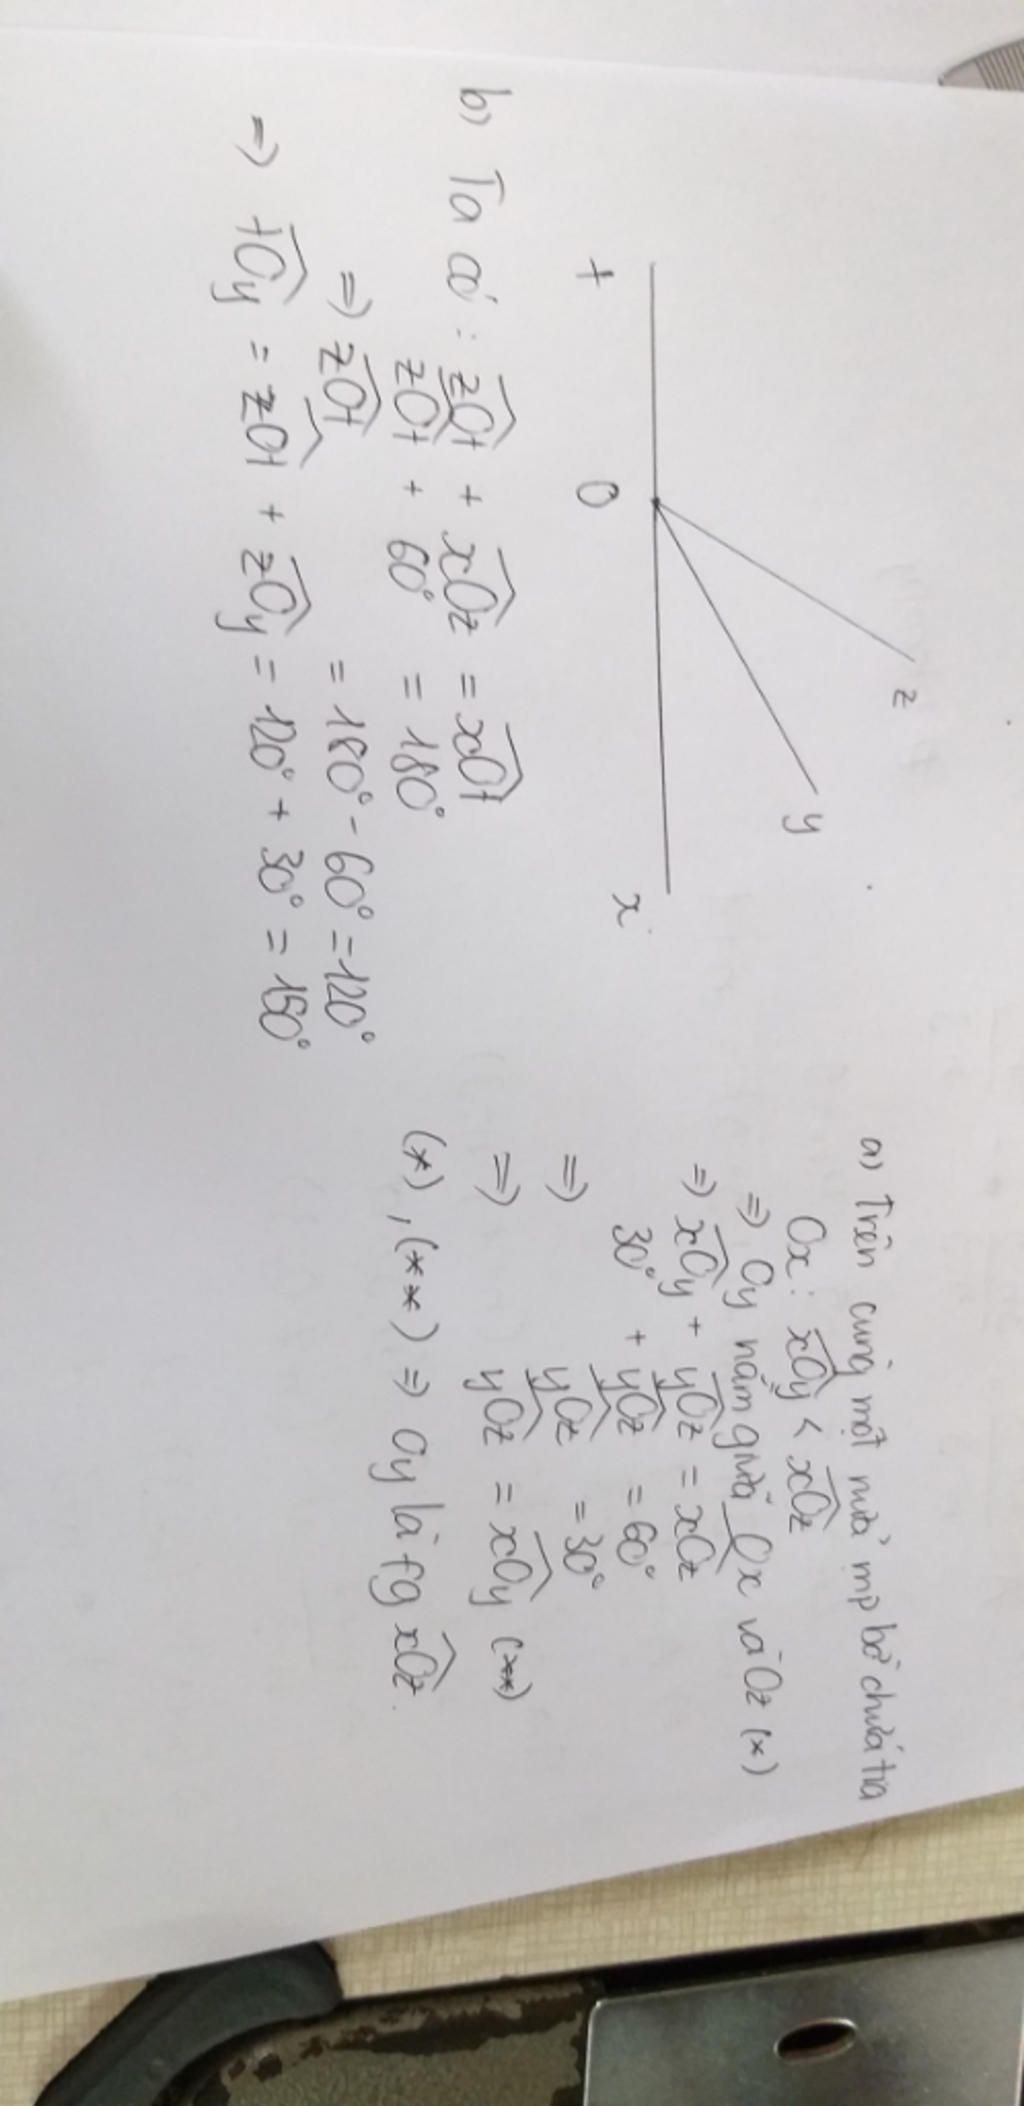 z
y
t
O
x
a) Trên cùng một nửa mp bờ chứa tia
Ox: xOy < xOz
=> Oy nằm giữa Ox và Oz (*)
=> xOy + yOz = xOz
30° + yOz = 60°
=> yOz = 30°
=> yOz = xOy (**)
(*), (**) => Oy là fg xOz.
b) Ta có: zOt + xOz = xOt
zOt + 60° = 180°
=> zOt = 180° - 60° = 120°
=> tOy = zOt + zOy = 120° + 30° = 150°